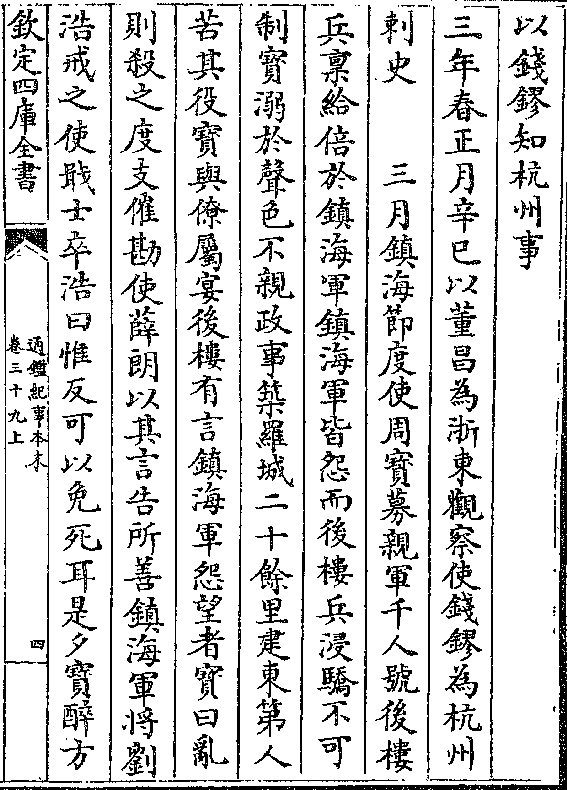 以錢鏐知杭州事
三年春正月辛巳以董昌為浙東觀察使錢鏐為杭州
刺史　　三月鎮海節度使周寶募親軍千人號後樓
兵稟給倍於鎮海軍鎮海軍皆怨而後樓兵浸驕不可
制寶溺於聲色不親政事築羅城二十餘里建東第人
苦其役寶與僚屬宴後樓有言鎮海軍怨望者寶曰亂
則殺之度支催勘使薛朗以其言告所善鎮海軍將劉
浩戒之使戢士卒浩曰惟反可以免死耳是夕寶醉方
欽定四庫全書
通鑑紀事本末
卷三十九上
四